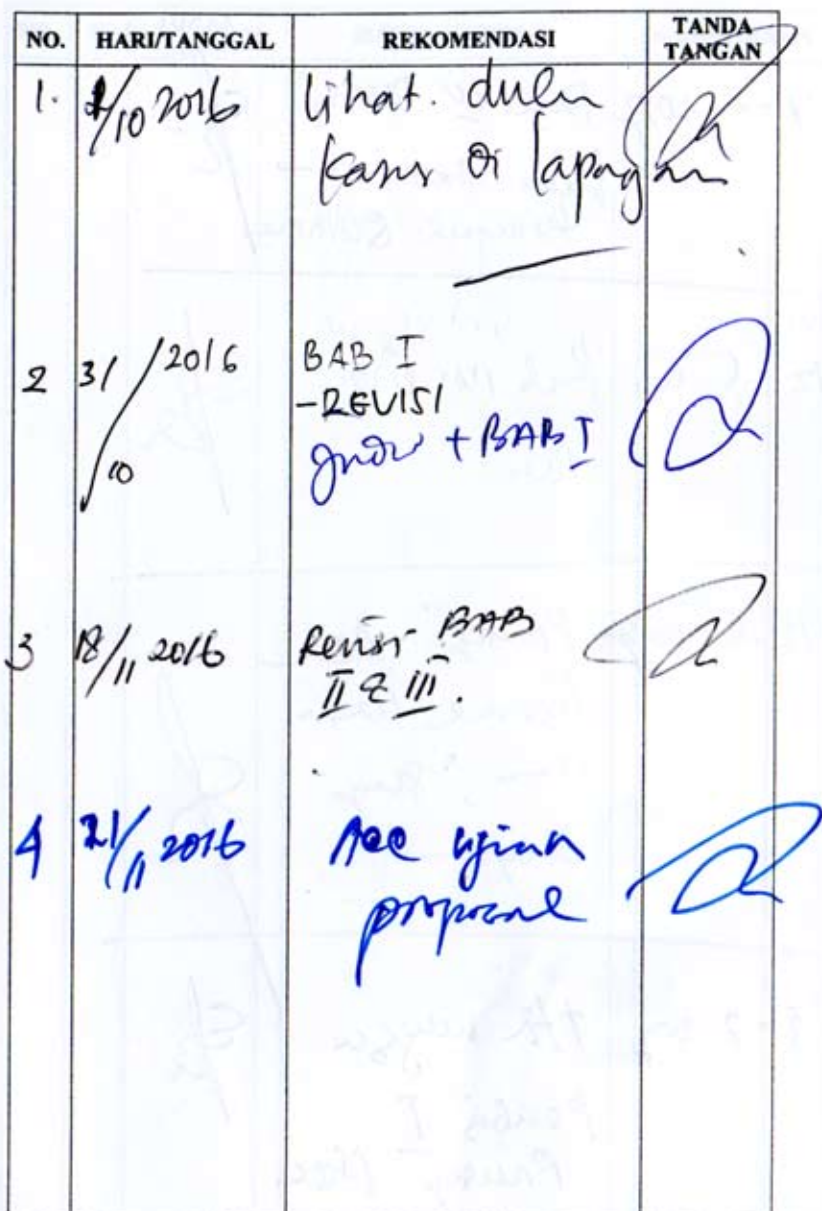 NO. HARI/TANGGAL REKOMENDASI TANDA TANGAN
1. /10 2016 Lihat. dulu
kasus di lapangan
2 31/10 2016 BAB I
-REVISI
+ BAB I
3 18/11 2016 Revisi BAB
II & III.
4 21/11 2016 Acc ujian
proposal